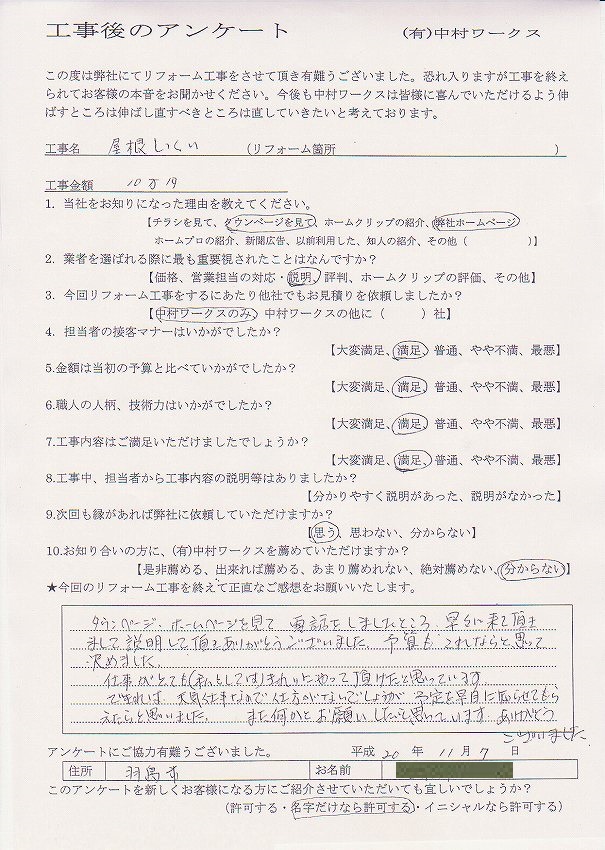 工事後のアンケート　(有)中村ワークス
この度は弊社にてリフォーム工事をさせて頂き有難うございました。恐れ入りますが工事を終え
られてお客様の本音をお聞かせください。今後も中村ワークスは皆様に喜んでいただけるよう伸
ばすところは伸ばし直すべきところは直していきたいと考えております。
工事名　屋根しくい　(リフォーム箇所　)
工事金額　10万19
1. 当社をお知りになった理由を教えてください。
【チラシを見て、タウンページを見て、ホームクリップの紹介、弊社ホームページ
ホームプロの紹介、新聞広告、以前利用した、知人の紹介、その他（　）】
2. 業者を選ばれる際に最も重要視されたことはなんですか？
【価格、営業担当の対応・説明、評判、ホームクリップの評価、その他】
3. 今回リフォーム工事をするにあたり他社でもお見積りを依頼しましたか？
【中村ワークスのみ、中村ワークスの他に（　）社】
4. 担当者の接客マナーはいかがでしたか？
【大変満足、満足、普通、やや不満、最悪】
5.金額は当初の予算と比べていかがでしたか？
【大変満足、満足、普通、やや不満、最悪】
6.職人の人柄、技術力はいかがでしたか？
【大変満足、満足、普通、やや不満、最悪】
7.工事内容はご満足いただけましたでしょうか？
【大変満足、満足、普通、やや不満、最悪】
8.工事中、担当者から工事内容の説明等はありましたか？
【分かりやすく説明があった、説明がなかった】
9.次回も縁があれば弊社に依頼していただけますか？
【思う、思わない、分からない】
10.お知り合いの方に、(有)中村ワークスを薦めていただけますか？
【是非薦める、出来れば薦める、あまり薦めれない、絶対薦めない、分からない】
★今回のリフォーム工事を終えて正直なご感想をお願いいたします。
タウンページ、ホームページを見て 電話をしましたところ、早々に来て頂き
まして説明して頂きありがとうございました。予算も これならと思って
決めました。
仕事がとても(私としては)きれいにやって頂けたと思っています
できれば、天気仕事なので仕方がないでしょうが 予定を早目に知らせてもら
えたらと思いました。 また何かとお願いしたいと思っています。ありがとう
ございました。
アンケートにご協力有難うございました。　平成 20 年 11 月 7 日
住所　羽島市　お名前
このアンケートを新しくお客様になる方にご紹介させていただいても宜しいでしょうか？
（許可する・名字だけなら許可する・イニシャルなら許可する）